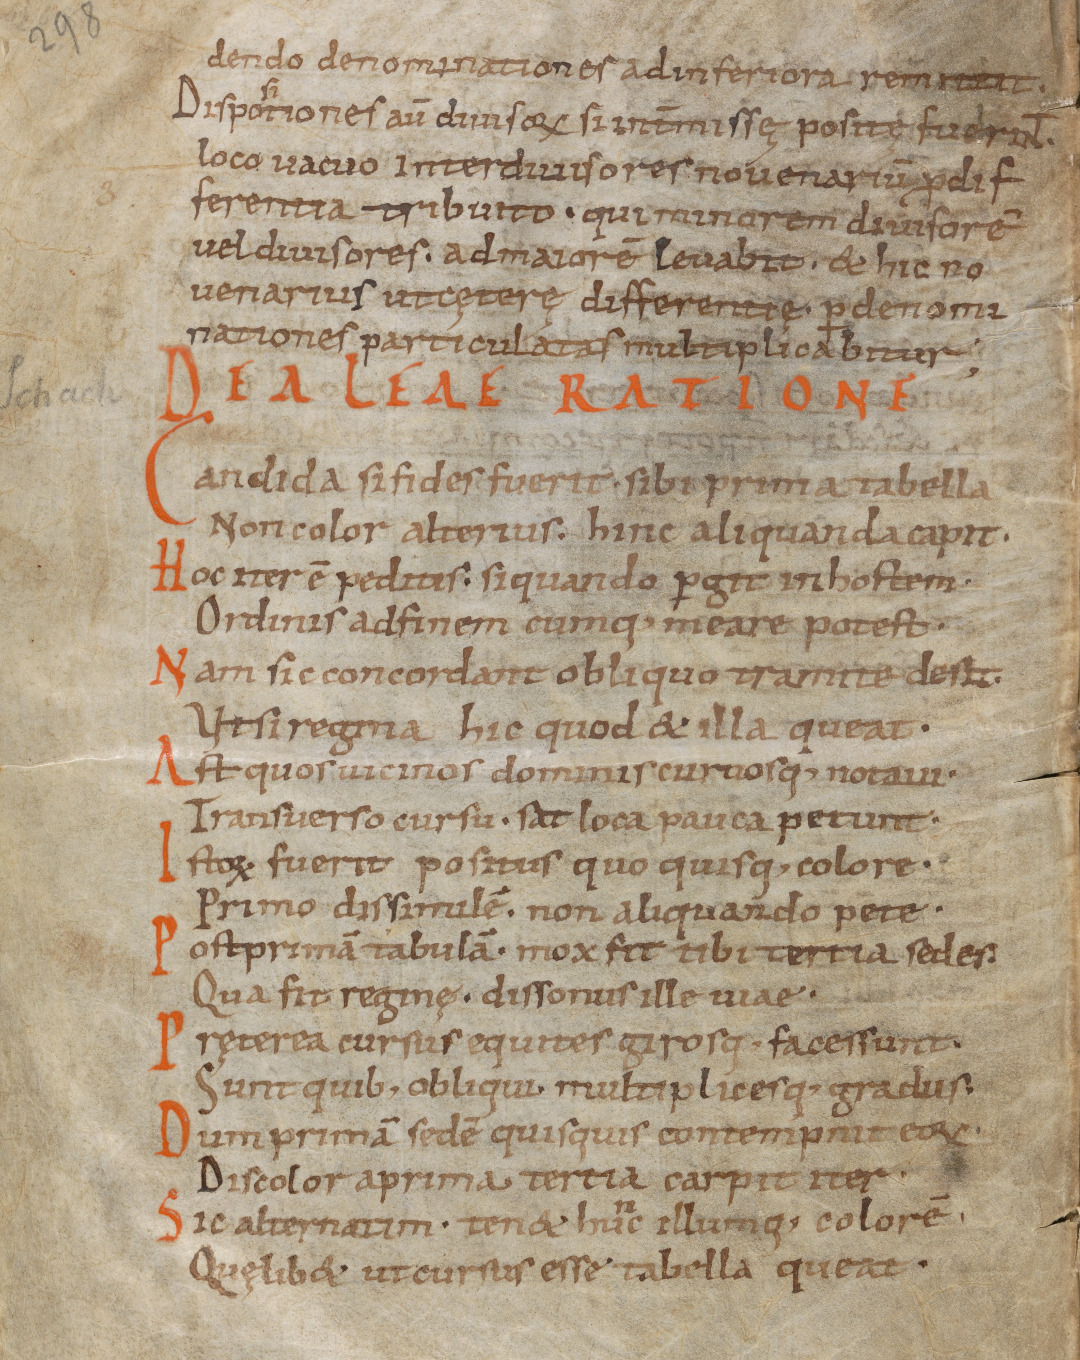 298
dendo denominationes ad inferiora remittit.
Dispositiones aū diuisoꝝ si int̄missę positę fuer̄int.
loco uacuo Interdiuisores nouenariū ꝑ dif
ferentia tribuito · qui minorem diuisorē
uel diuisores. ad maiorē leuabit. & hic no
uenarius ut cęterę differentię. ꝑ denomi
nationes particulatas multiplicabitur;
Schach
DE ALEAE RATIONE
Candida si fides fuerit sibi prima tabella
Non color alterius. hinc aliquanda capit.
Hoc iter ē peditis: si quando ꝑgit in hostem.
Ordinis ad finem cumq; meare potest.
Nam sic concordant obliquo tramite desit.
Vt si regina hic quod & illa queat.
Ast quos uicinos dominis curuosq; notaui.
Transuerso cursu. sat loca pauca petunt.
Istoꝝ. fuerit positus quo quisq; colore.
Primo dissimilē. non aliquando pete.
Post primā tabulā. mox fit tibi tertia sedes:
Qua fit reginę. dissonus ille uiae.
Pręterea cursus equites girosq; facessunt.
Sunt quib; obliqui. multiplicesq; gradus.
Dum primā sedē quisquis contempnit eoꝝ.
Discolor a prima. tertia carpit iter.
Sic alternatim. ten& hunc illumq; colorē.
Quęlib& ut cursus esse tabella queat.